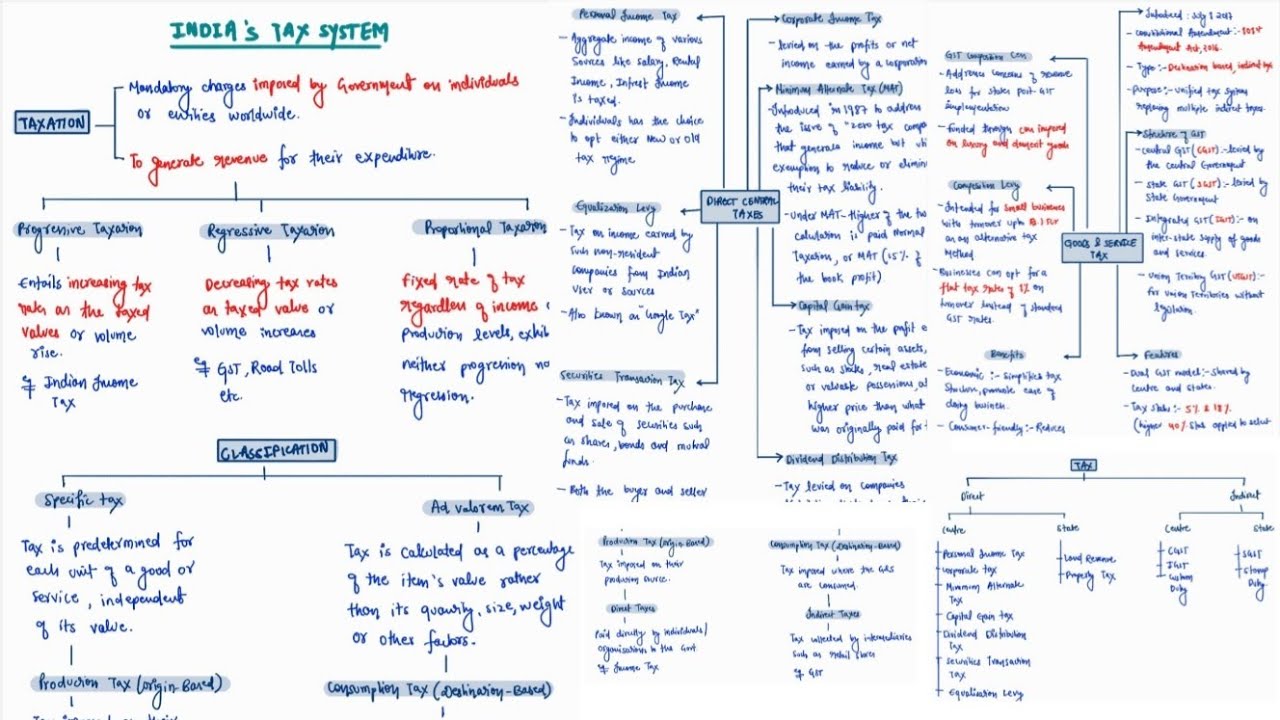 INDIA's TAX SYSTEM
TAXATION
Mandatory charges imposed by Government on individuals
or entities worldwide.
To generate revenue for their expenditure.
Progressive Taxation
Entails increasing tax
rates as the taxed
values or volume
rise.
eg Indian Income
Tax
Regressive Taxation
Decreasing tax rates
as taxed value or
volume increases
eg GST, Road Tolls
etc.
Proportional Taxation
Fixed rate of tax
regardless of income
Production levels, exhib
neither progression no
regression.
CLASSIFICATION
Specific tax
Tax is predetermined for
each unit of a good or
service, independent
of its value.
Production Tax (origin-Based)
Ad valorem Tax
Tax is calculated as a percentage
of the item's value rather
than its quantity, size, weight
or other factors.
Consumption Tax (Destination-Based)
Personal Income Tax
- Aggregate income of various
Sources like salary, Rental
Income, Interest Income
is taxed.
- Individuals has the choice
to opt either New or old
tax regime
Equalization Levy
- Tax on income earned by
such non-resident
companies from Indian
User or sources
- Also known as "Google Tax"
Securities Transaction Tax
- Tax imposed on the purchase
and sale of securities such
as shares, bonds and mutual
funds.
- Both the buyer and seller
DIRECT CENTRAL
TAXES
Corporate Income Tax
- levied on the profits or net
income earned by a corporation
Minimum Alternate Tax (MAT)
- Introduced in 1987 to address
the issue of "zero tax compa
that generate income but uti
exemption to reduce or elimin
their tax liability.
- Under MAT - Higher of the two
calculation is paid Normal
Taxation, or MAT (15% of
the book profit)
Capital Gain tax
- Tax imposed on the profit
from selling certain assets,
such as stocks, real estate
or valuable possessions a
higher price than what
was originally paid for
Dividend Distribution Tax
- Tax levied on companies
Production Tax (origin-Based)
Tax imposed on their
production source.
Direct Taxes
Paid directly by individuals/
organisations to the Govt
eg Income Tax
Consumption Tax (Destination-Based)
Tax imposed where the G&S
are consumed.
Indirect Taxes
Tax collected by intermediaries
such as retail stores
eg GST
GST Compensation Cess
- Addresses concerns of revenue
loss for states post-GST
implementation
- Funded through cess imposed
on luxury and demerit goods
Composition Levy
- Intended for small businesses
with turnover upto
as an alternative tax
method
- Businesses can opt for a
flat tax rate of 1% on
turnover instead of standard
GST rates.
Benefits
- Economic :- Simplifies tax
Structure, promote ease of
doing business.
- Consumer-friendly :- Reduces
GOODS & SERVICE
TAX
Introduced : July 1 2017
- Constitutional Amendment :- 101st
Amendment Act, 2016.
- Type :- Destination based, indirect tax
- purpose :- Unified tax system
replacing multiple indirect taxes.
Structure of GST
- central GST (CGST) :- levied by
the central Government
- state GST (SGST) :- levied by
State Government
- Integrated GST (IGST) :- on
inter-state supply of goods
and services.
- Union Territory GST (UTGST) :-
for Union Territories without
legislature.
Features
- Dual GST model :- shared by
centre and states.
- Tax slabs :- 5% & 18%
(higher 40% slab applied to select
TAX
Direct
Indirect
Centre
State
Centre
State
Personal Income Tax
Corporate tax
Minimum Alternate
Tax
Capital Gain tax
Dividend Distribution
Tax
Securities Transaction
Tax
Equalization Levy
Land Revenue
Property Tax
CGST
IGST
Custom
Duty
SGST
Stamp
Duty